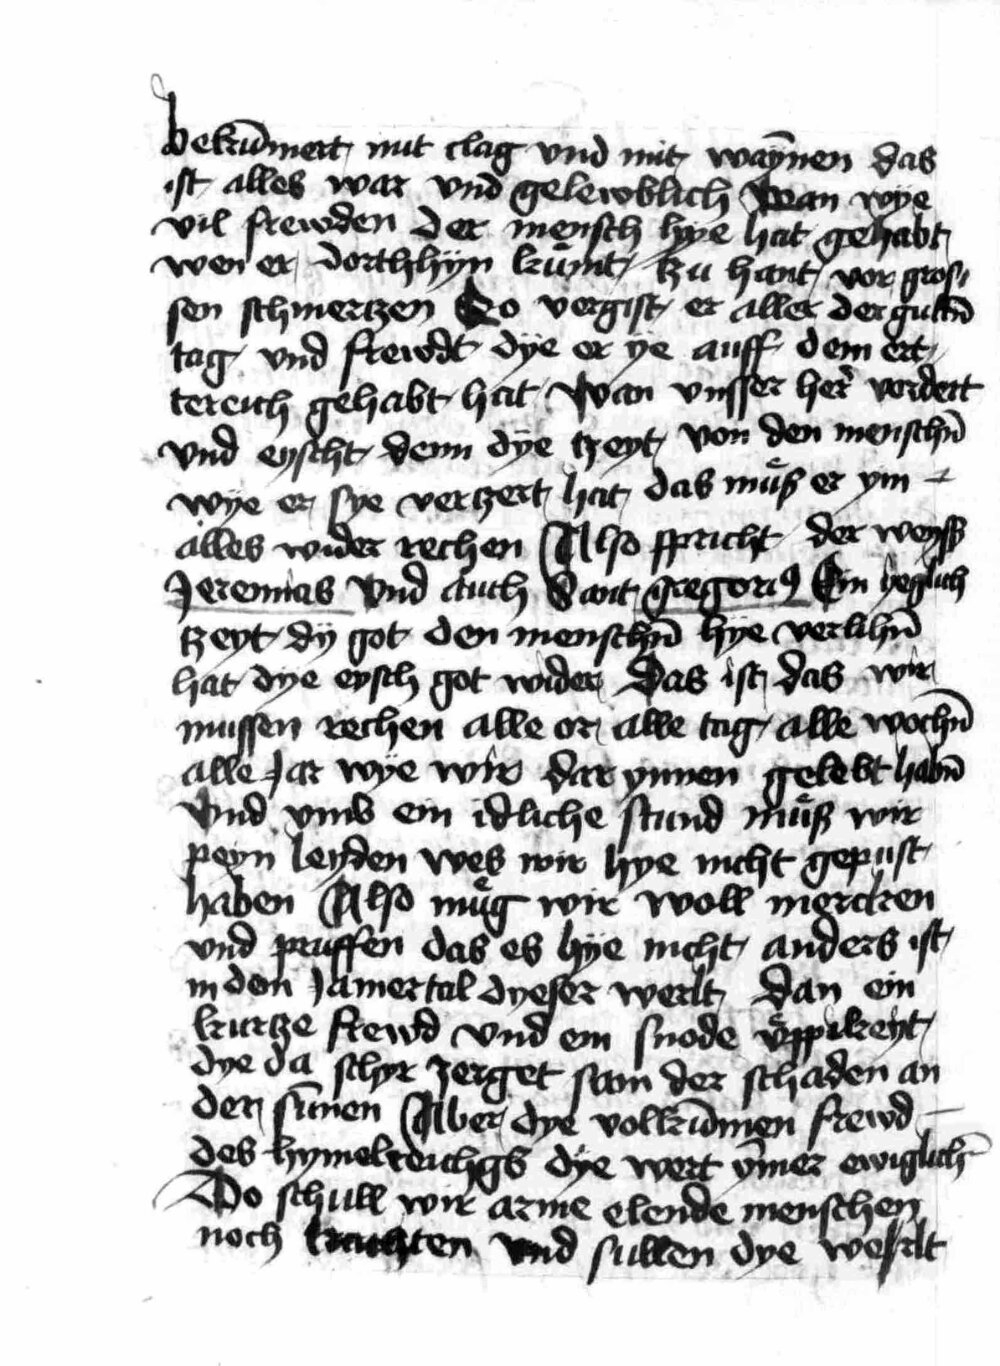 bekūmert mit clag vnd mit waȳnen das
ist alles war vnd gelewblich Wan wÿe
vil frewden der mensch hÿe hat gehabt
wen er dorthhÿn kūmt tzu hant vor gros
sen schmertzen So vergist er aller der gutn̄
tag vnd frewdt dÿe er ÿe auff dem ert
tereich gehabt hat Wan vnsser her vordert
vnd eyscht denn dÿe tzeyt von den menschn̄
wÿe er sÿe vertzert hat das muͤß er ym
alles wider rechen Also spricht der weyß
Jeremias Vnd auch Sant gregoriꝯ Ein yeglich
tzeyt dÿ got den menschn̄ hÿe verlihn̄
hat dye eysch got wider Das ist das wir
mussen rechen alle or alle tag alle wochn̄
alle Jar wÿe wir dar ynnen gelebt habn̄
Vnd vmb ein idliche stund muͤß wir
peyn leyden wes wir hye nicht gepust
haben Also muͤg wir woll mercken
vnd pruffen das es hÿe nicht anders ist
in dem Jamertal dyeser werlt Dan ein
kurtze frewd vnd ein snode vͤppikeyt
dye da schyr zerget sam der schaden an
der sūnen Aber dye volkūmen frewd
des hymelreichgs dÿe wert ȳmer ewiglich
Do schull wir arme elende menschen
noch trachten vnd sullen dye werlt